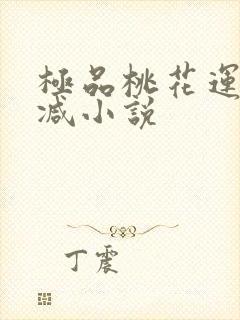 極品桃花運
减小說
丁震